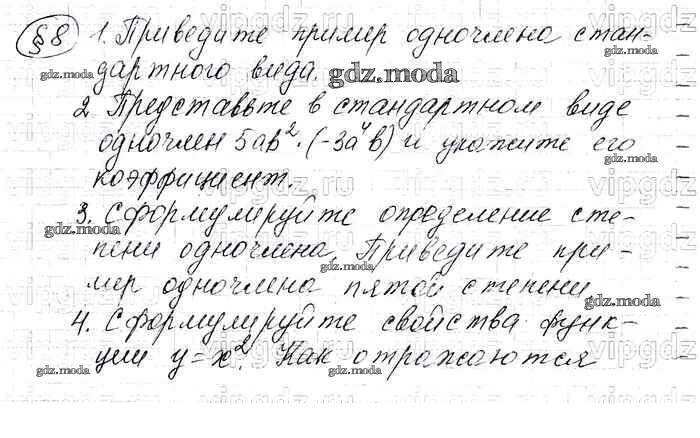 §8 1. Приведите пример одночлена стан-
дартного вида.
2 Представьте в стандартном виде
одночлен 5ab². (-3a⁴b) и укажите его
коэффициент.
3. Сформулируйте определение сте-
пени одночлена. Приведите при-
мер одночлена пятой степени
4. Сформулируйте свойства функ-
ции y=x². Как отражаются
gdz.moda
vipgdz.ru